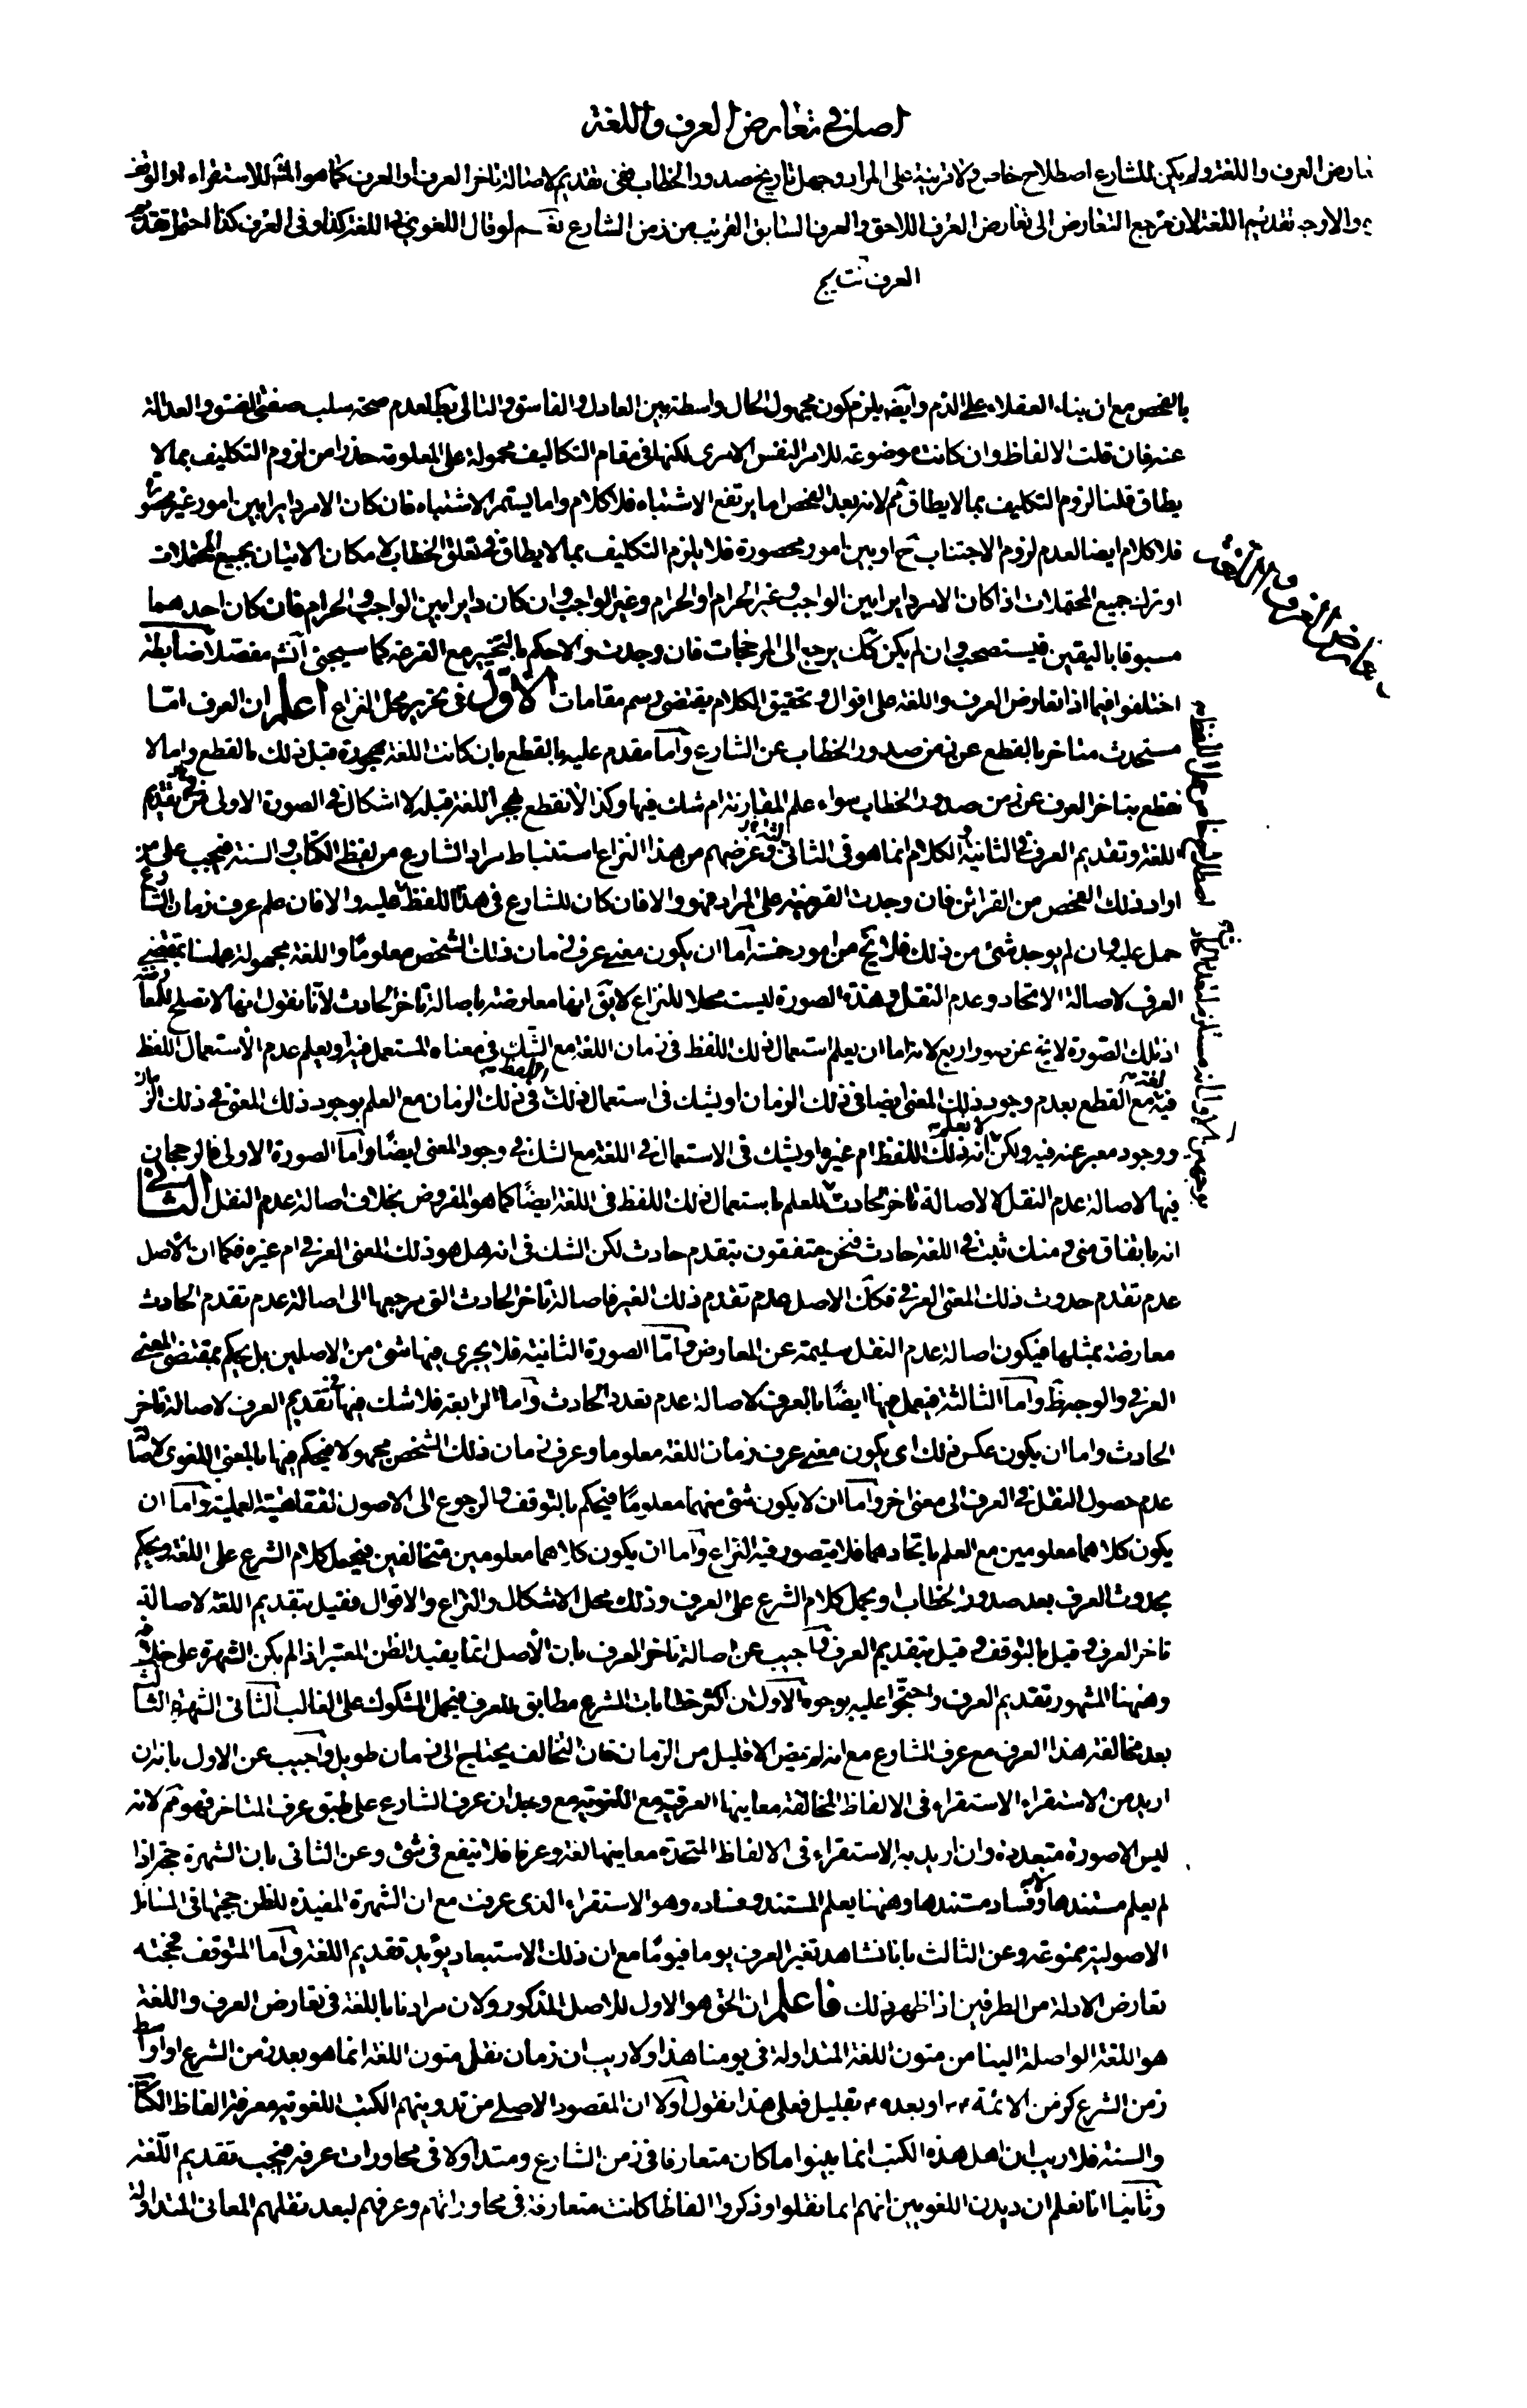 اصل في تعارض العرف واللغة
تعارض العرف واللغة ولم يكن للشارع اصطلاح خاص ولا قرينة على المراد وجهل تاريخ صدور الخطاب ففى تقديم لاصالة تاخر العرف او العرف كما هو المش للاستقراء او الوقف
والاوجه تقديم اللغة لان مرجع التعارض الى تعارض العرف اللاحق والعرف السابق القريب من زمن الشارع نعم لو قال اللغوي في اللغة كذا وفى العرف كذا احتمل تقديم
العرف
بالفحص مع ان بناء العقلاء على الذم وايضا يلزم كون مجهول الحال واسطة بين العادل والفاسق والتالى بط لعدم صحة سلب صفتى الفسق والعدالة
عنه فان قلت الالفاظ وان كانت موضوعة للامر النفس الامرى لكنها فى مقام التكاليف محمولة على المعلومة حذرا من لزوم التكليف بما لا
يطاق قلنا لزوم التكليف بما لا يطاق مم لانه بعد الفحص اما يرتفع الاشتباه فلا كلام واما يستمر الاشتباه فان كان الامر دايرا بين امور غير محصورة
فلا كلام ايضا لعدم لزوم الاجتناب ح او بين امور محصورة فلا يلزم التكليف بما لا يطاق فى تعلق الخطاب لامكان الاتيان بجميع المحتملات
او ترك جميع المحتملات اذا كان الامر دايرا بين الواجب وغير الحرام او الحرام وغير الواجب وان كان دايرا بين الواجب والحرام فان كان احدهما
مسبوقا باليقين فيستصحب وان لم يكن كك يرجع الى المرجحات فان وجدت والا حكم بالتخيير مع القرعة كما سيجئ انش مفصلا ضابطة
اختلفوا فيما اذا تعارض العرف واللغة على اقوال وتحقيق الكلام يقتضى رسم مقامات الاول فى تحرير محل النزاع اعلم ان العرف اما
مستحدث متاخر بالقطع عن زمن صدور الخطاب عن الشارع واما مقدم عليه بالقطع بان كانت اللغة مهجورة قبل ذلك بالقطع واما لا
نقطع بتاخر العرف عن زمن صدور الخطاب سواء علم المقارنة ام شك فيها وكذا لا نقطع بهجر اللغة قبله لا اشكال فى الصورة الاولى فى تقديم
اللغة وتقديم العرف فى الثانية والكلام انما هو فى الثالثة وغرضهم من هذا النزاع استنباط مراد الشارع من لفظ الكتاب والسنة فيجب على من
اراد ذلك الفحص من القرائن فان وجدت القرينة على المراد فهو والا فان كان للشارع فى هذا اللفظ عليه والا فان علم عرف زمان الشارع
حمل عليه وان لم يوجد شئ من ذلك فلا يخ من امور خمسة اما ان يكون معنى عرف زمان ذلك الشخص معلوما واللغة مجهولة عملنا بمقتضى
العرف لاصالة الاتحاد وعدم النقل وهذه الصورة ليست محلا للنزاع لا يق انها معارضة باصالة تاخر الحادث لانا نقول انها لا تصلح للمعارضة
اذ تلك الصورة لا يخ عن صور اربع لانه اما ان يعلم استعمال ذلك اللفظ فى زمان اللغة مع الشك فى معناه المستعمل فيه او يعلم عدم الاستعمال اللفظ
فيه مع القطع بعدم وجود ذلك المعنى ايضا فى ذلك الزمان او يشك فى استعمال ذلك اللفظ فى ذلك الزمان مع العلم بوجود ذلك المعنى فى ذلك الزمان
ووجود معبر عنه فيه ولكن لا يعلم انه ذلك اللفظ ام غيره او يشك فى الاستعمال فى اللغة مع الشك فى وجود المعنى ايضا واما الصورة الاولى فالرجحان
فيها لاصالة عدم النقل لا لاصالة تاخر الحادث للعلم باستعمال ذلك اللفظ فى اللغة ايضا كما هو المفروض بخلاف اصالة عدم النقل الثانى
انه باتفاق منى ومنك ثبت فى اللغة حادث فنحن متفقون بتقدم حادث لكن الشك فى انه هل هو ذلك المعنى العرفى ام غيره فكما ان الاصل
عدم تقدم حدوث ذلك المعنى العرفى فكك الاصل عدم تقدم ذلك الغير فاصالة تاخر الحادث التى مرجعها الى اصالة عدم تقدم الحادث
معارضة بمثلها فيكون اصالة عدم النقل سليمة عن المعارض واما الصورة الثانية فلا يجرى فيها شئ من الاصلين بل يحكم بمقتضى المعنى
العرفى والوجه ظ واما الثالثة فيعمل فيها ايضا بالعرف لاصالة عدم تعدد الحادث واما الرابعة فلا شك فيها فى تقديم العرف لاصالة تاخر
الحادث واما ان يكون عكس ذلك اى يكون معنى عرف زمان اللغة معلوما وعرف زمان ذلك الشخص مجهولا فيحكم فيها بالمعنى اللغوى لاصالة
عدم حصول النقل فى العرف الى معنى اخر واما ان لا يكون شئ منهما معلوما فيحكم بالتوقف والرجوع الى الاصول الفقاهية العملية واما ان
يكون كلاهما معلومين مع العلم باتحادهما فلا يتصور فيه النزاع واما ان يكون كلاهما معلومين متخالفين فيحمل كلام الشرع على اللغة ويحكم
بحدوث العرف بعد صدور الخطاب او يحمل كلام الشرع على العرف وذلك محل الاشكال والنزاع والاقوال فقيل بتقديم اللغة لاصالة
تاخر العرف وقيل بالتوقف وقيل بتقديم العرف واجيب عن اصالة تاخر العرف بان الاصل انما يفيد الظن المعتبر اذا لم يكن الشهرة على خلافه
وههنا المشهور تقديم العرف واحتجوا عليه بوجوه الاول ان اكثر خطابات الشرع مطابق للعرف فيحمل المشكوك على الغالب الثانى الشهرة الثالث
بعد مخالفة هذا العرف مع عرف الشارع مع انه لم يمض الا قليل من الزمان فان التخالف يحتاج الى زمان طويل واجيب عن الاول بانه ان
اريد من الاستقراء الاستقراء فى الالفاظ المخالفة معانيها العرفية مع اللغوية مع وجدان عرف الشارع على طبق عرف المتاخر فهو مم لانه
ليس الا صورة متعددة وان اريد به الاستقراء فى الالفاظ المتحدة معانيها لغة وعرفا فلا ينفع فى شئ وعن الثانى بان الشهرة حجة اذا
لم يعلم مستندها ولا فساد مستندها وههنا يعلم المستند وفساده وهو الاستقراء الذى عرفت مع ان الشهرة المفيدة للظن حجيتها فى المسائل
الاصولية ممنوعة وعن الثالث بانا نشاهد تغير العرف يوما فيوما مع ان ذلك الاستبعاد يؤيد تقديم اللغة واما المتوقف فحجته
تعارض الادلة من الطرفين اذا ظهر ذلك فاعلم ان الحق هو الاول للاصل المذكور ولان مرادنا باللغة فى تعارض العرف واللغة
هو اللغة الواصلة الينا من متون اللغة المتداولة فى يومنا هذا ولا ريب ان زمان نقل متون اللغة انما هو بعد زمن الشرع او اواسط
زمن الشرع كزمن الائمة او بعده بقليل فعلى هذا نقول اولا ان المقصود الاصلى من تدوينهم الكتب اللغوية معرفة الفاظ الكتاب
والسنة فلا ريب ان اهل هذه الكتب انما بينوا ما كان متعارفا فى زمن الشارع ومتداولا فى محاورات عرفه فيجب تقديم اللغة
وثانيا انا نعلم ان ديدن اللغويين انهم انما نقلوا وذكروا الفاظا كانت متعارفة فى محاوراتهم وعرفهم لبعد نقلهم المعانى المتداولة